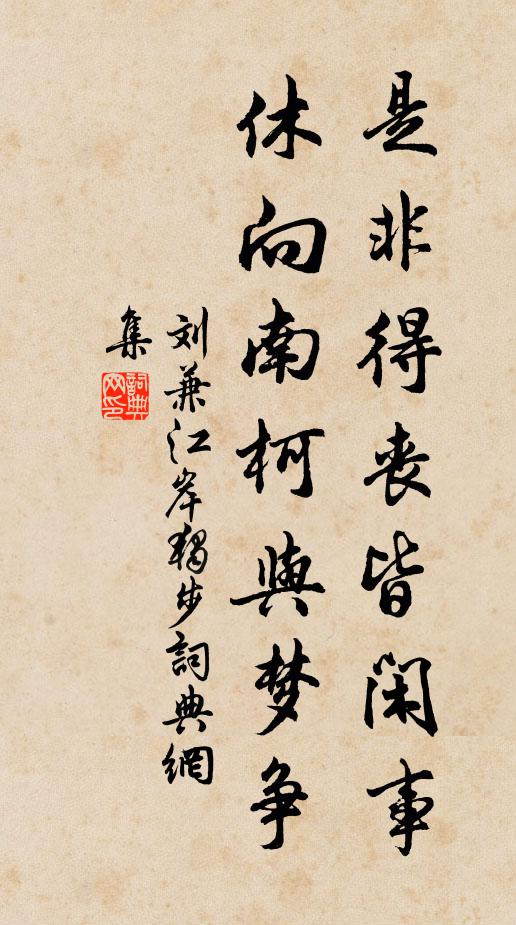 是非得丧皆闲事
休向南柯與梦争
刘兼江岸獨步詞典網
集
詞典网印